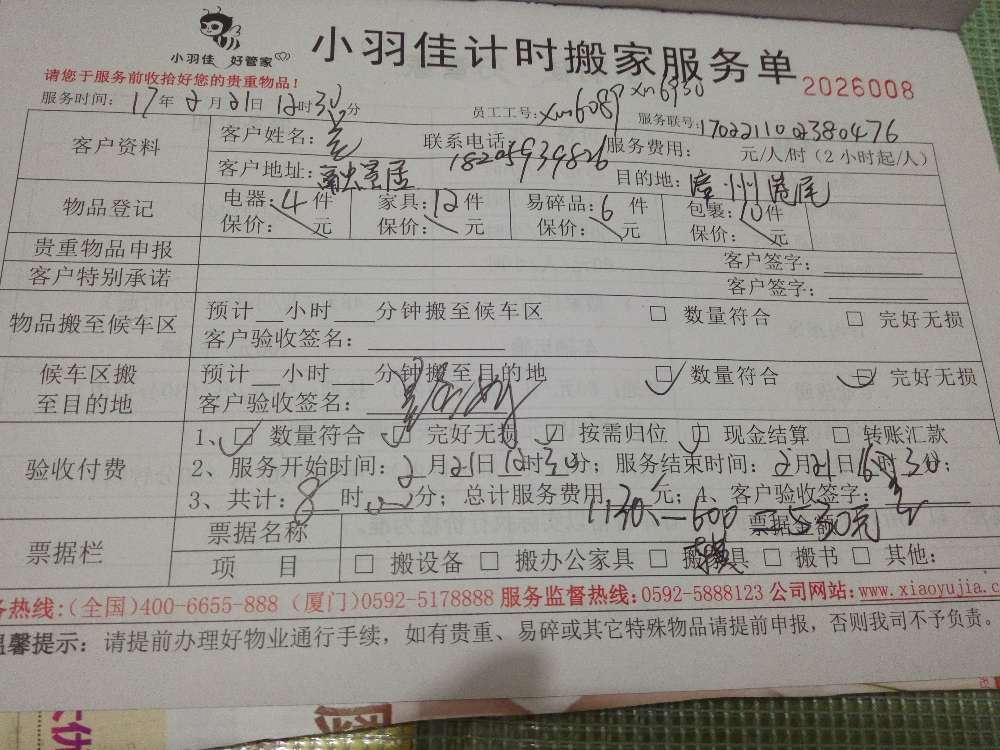 小羽佳 好管家
小羽佳计时搬家服务单
2026008
请您于服务前收拾好您的贵重物品！
服务时间：17年2月21日12时30分 员工工号：xm6089 xm6930 服务联号：1702211002380476
客户资料
客户姓名： 联系电话：18205939826 服务费用： 元/人/时（2小时起/人）
客户地址：融景星居 目的地：漳州港尾
物品登记
电器：4件 家具：12件 易碎品：6件 包裹：10件
保价： 元 保价： 元 保价： 元 保价： 元
贵重物品申报 客户签字：
客户特别承诺 客户签字：
物品搬至候车区
预计 小时 分钟搬至候车区 □ 数量符合 □ 完好无损
客户验收签名：
候车区搬
至目的地
预计 小时 分钟搬至目的地 □ 数量符合 □ 完好无损
客户验收签名：
验收付费
1、□ 数量符合 □ 完好无损 □ 按需归位 □ 现金结算 □ 转账汇款
2、服务开始时间：2月21日12时30分；服务结束时间：2月21日16时30分；
3、共计：8时 分；总计服务费用 元；4、客户验收签字：
1130－600＝530元
票据栏
票据名称 票据金额
项 目 □ 搬设备 □ 搬办公家具 □ 搬家具 □ 搬书 □ 其他：
务热线：（全国）400-6655-888（厦门）0592-5178888 服务监督热线：0592-5888123 公司网站：www.xiaoyujia.c
温馨提示：请提前办理好物业通行手续，如有贵重、易碎或其它特殊物品请提前申报，否则我司不予负责。